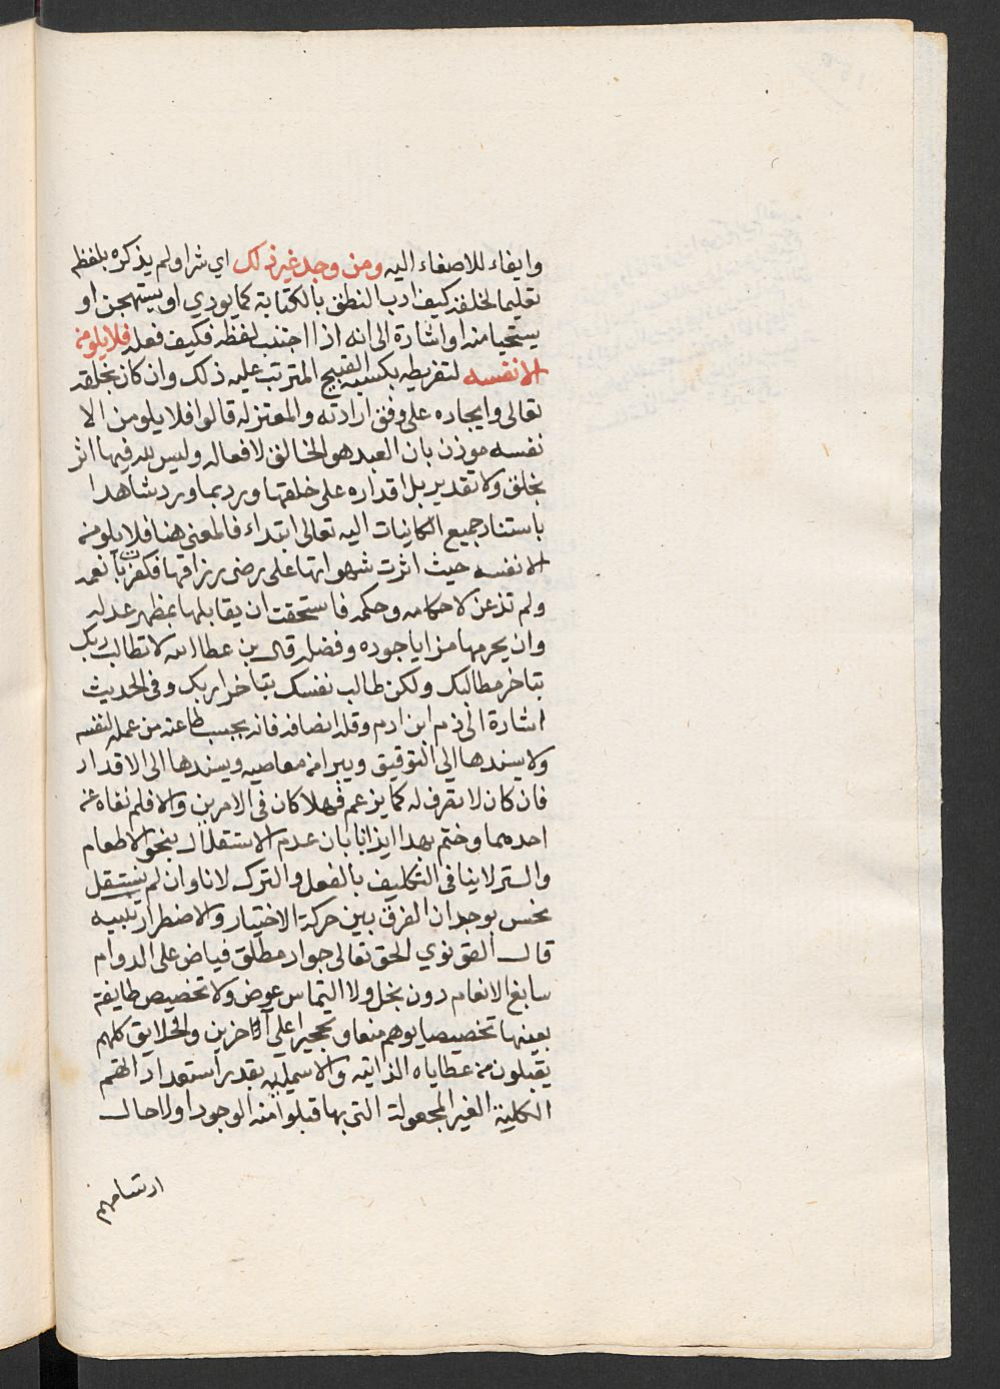 وايفاء للاصغاء اليه ومن وجد غير ذلك اي شرا ولم يذكره بلفظه
تعليما لخلقه كيف ادب النطق بالكناية كما يوذي او يستهجن او
يستحيا منه او اشارة الى انه اذا اجتنب لفظه فكيف فعله فلا يلومن
الا نفسه لتفريطه بكسبه القبيح المترتب عليه ذلك وان كان بخلقه
تعالى وايجاده على وفق ارادته والمعتزله قالوا فلا يلومن الا
نفسه موذن بان العبد هو الخالق لافعاله وليس لله فيها اثر
بخلق ولا تقدير بل اقداره على خلقها ورد بما ورد شاهدا
باستناد جميع الكاينات اليه تعالى ابتداء فالمعنى هنا فلا يلومن
الا نفسه حيث اثرت شهواتها على رضى رازقها فكفرت بانعمه
ولم تذعن لاحكامه وحكمه فاستحقت ان يقابلها بمظهر عدله
وان يحرمها مزايا جوده وفضله قال بن عطا الله لا تطالب ربك
بتاخر مطالبك ولكن طالب نفسك بتاخر ادبك وفي الحديث
اشارة الى ذم ابن ادم وقلة انصافه فانه يحسب طاعته من عمله لنفسه
ولا يسندها الى التوفيق ويبرا من معاصيه ويسندها الى الاقدار
فان كان لا تصرف له كما يزعم فهلا كان في الامرين والا فلم نفاه عن
احدهما وختم بهذا ايذانا بان عدم الاستقلال بنحو الاطعام
والستر لا ينافي التكليف بالفعل والترك لانا وان لم نستقل
نحس بوجدان الفرق بين حركة الاختيار والاضطرار تنبيه
قال القونوي الحق تعالى جواد مطلق فياض على الدوام
سابغ الانعام دون بخل ولا التماس عوض ولا تخصيص طايفة
بعينها تخصيصا يوهم منعا وتحجيرا على الاخرين والخلايق كلهم
يقبلون من عطاياه الذاتيه والاسمايية بقدر استعداداتهم
الكلية الغير المجعولة التي بها قبلوا منه الوجود اولا حال
ارتسامهم